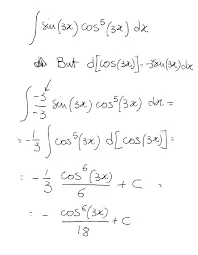 ∫ sin(3x) cos⁵(3x) dx
But d[cos(3x)] = -3sin(3x)dx
∫ -3/-3 sin(3x) cos⁵(3x) dx =
= -1/3 ∫ cos⁵(3x) d[cos(3x)] =
= -1/3 cos⁶(3x)/6 + C =
= - cos⁶(3x)/18 + C